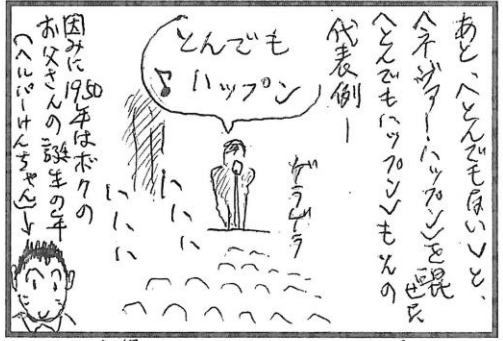 あと、〈とんでもない〉と、
〈ネバァー・ハップン〉を混
〈とんでもハップン〉もその
代表例ー
とんでも
ハップン♪
ゲラゲラ
因みに1950年はボクの
お父さんの誕生の年
(ヘルパーけんちゃん)→